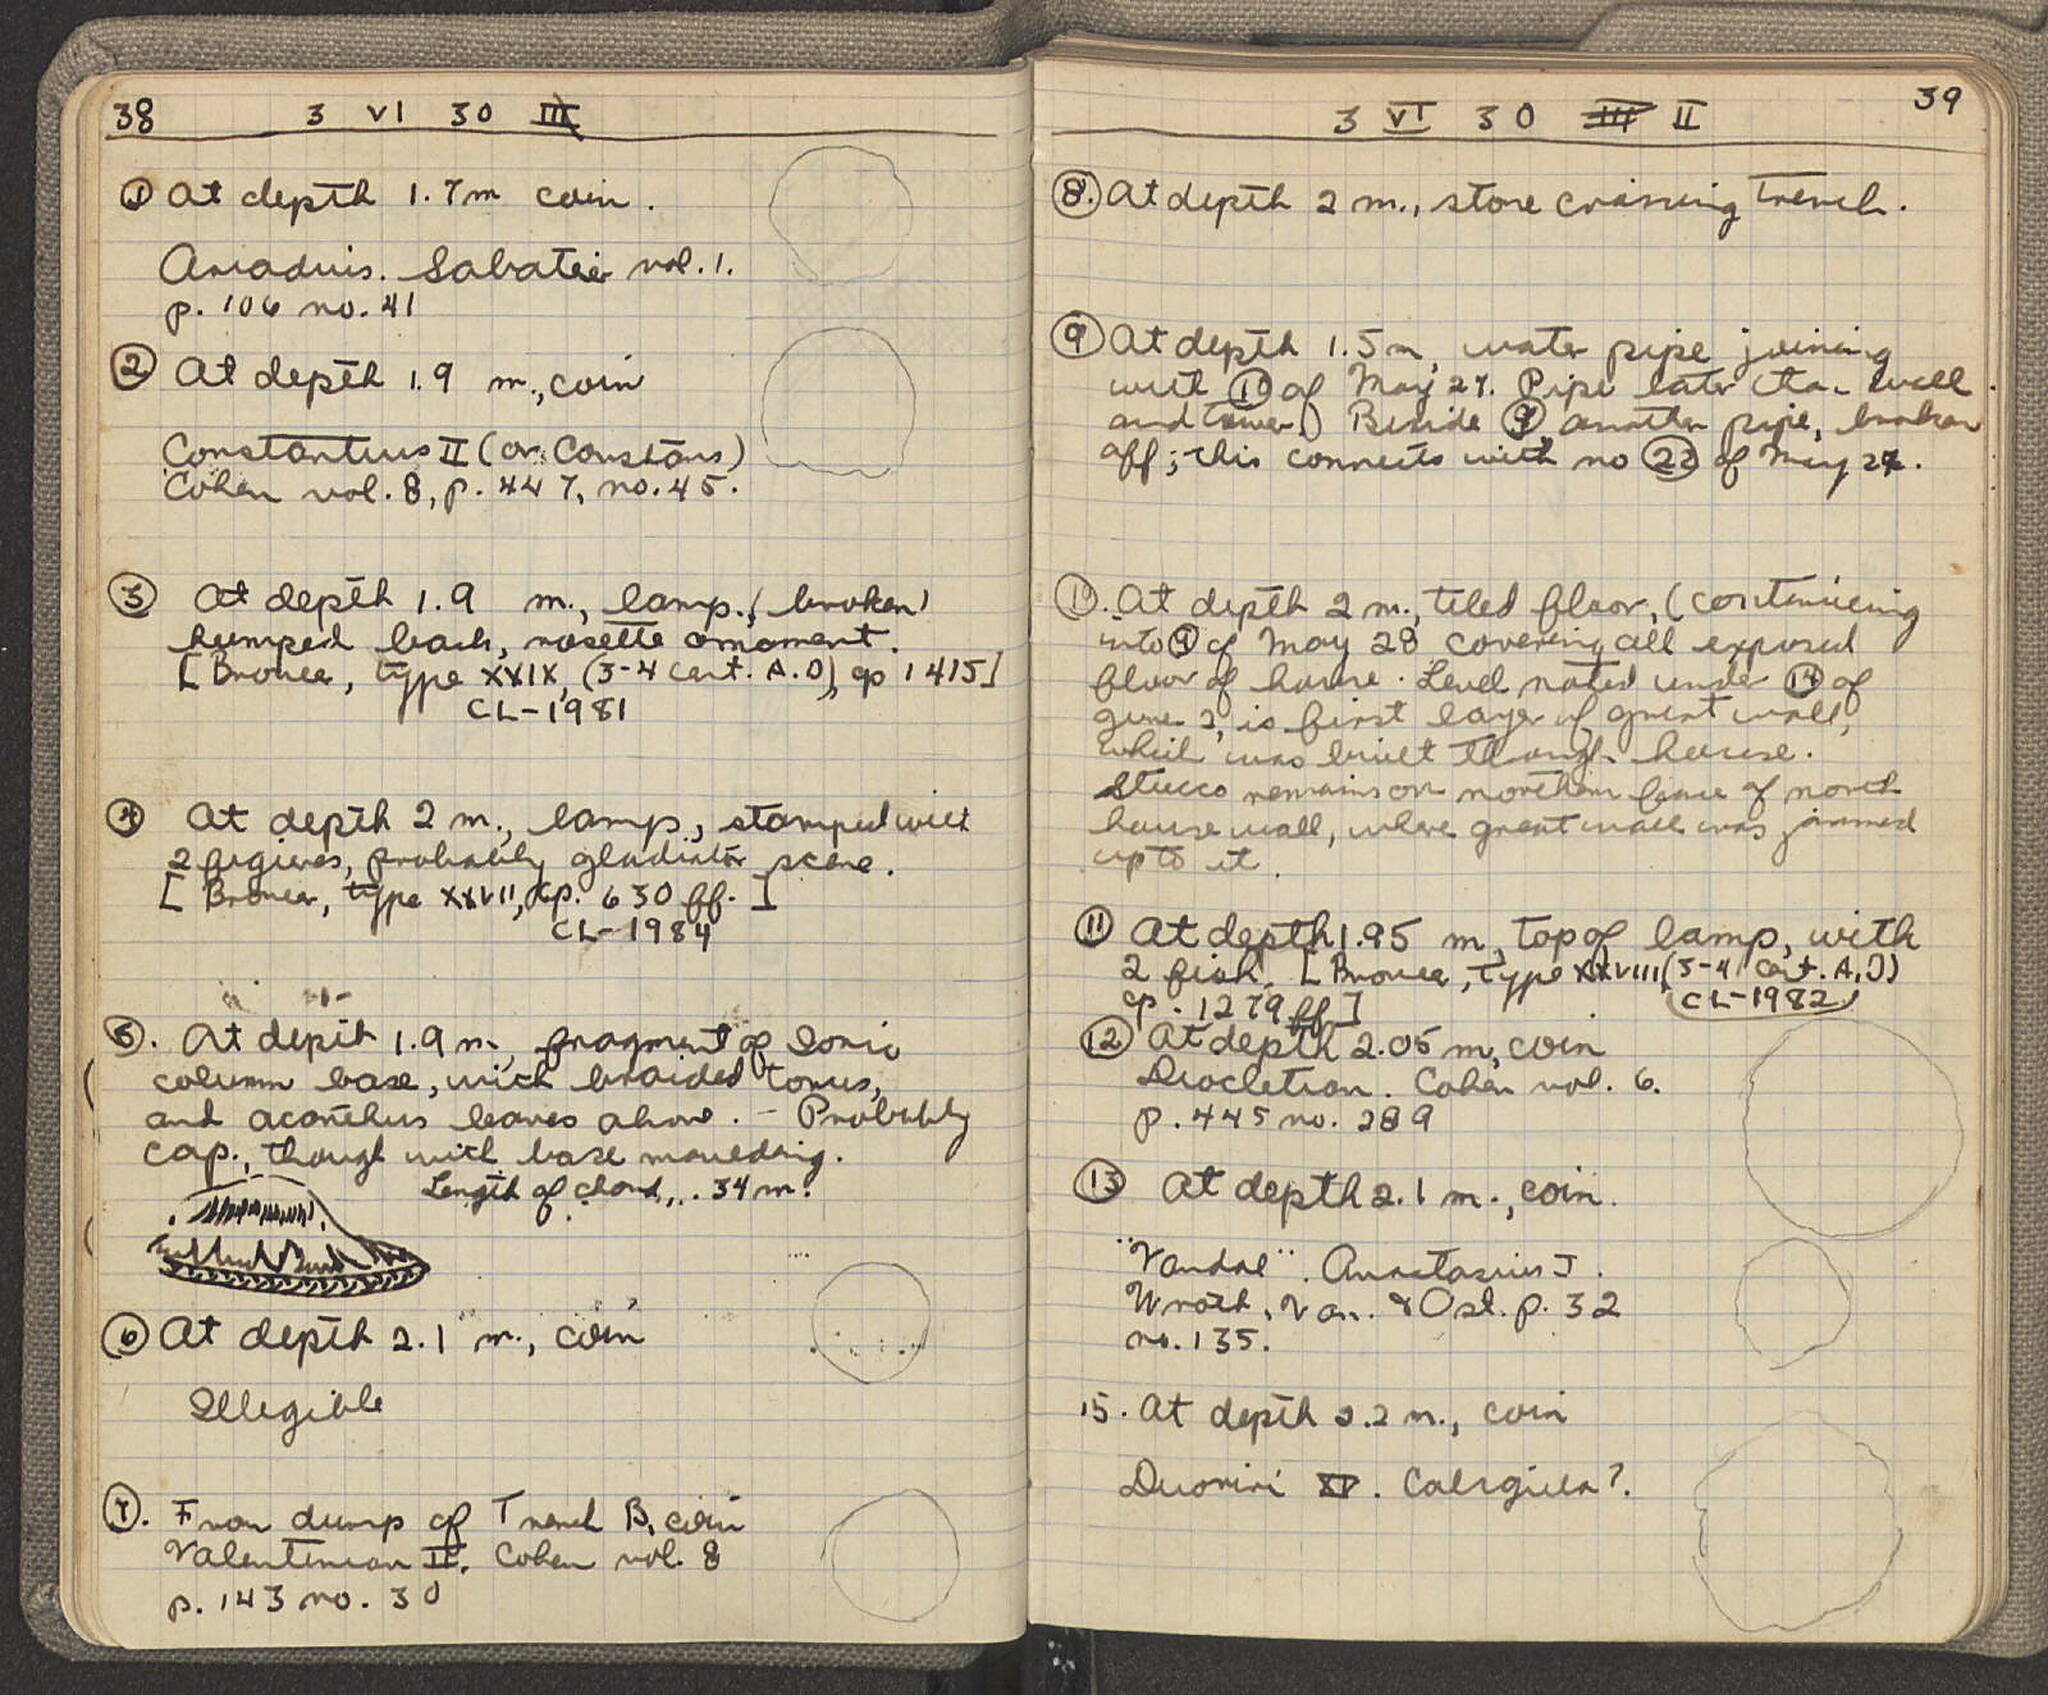 38 3 VI 30 III
① At depth 1.7 m coin.
Arcadius. Sabatier vol. 1.
p. 106 no. 41
② At depth 1.9 m., coin
Constantius II (or Constans)
Cohen vol. 8, p. 447, no. 45.
③ At depth 1.9 m., lamp, (broken)
humped back, rosette ornament.
[Broneer, type XXIX, (3-4 cent. A.D), cp 1415]
CL-1981
④ At depth 2 m., lamp, stamped with
2 figures, probably gladiator scene.
[Broneer, type XXVII, cp. 630 ff.]
CL-1984
⑤. At depth 1.9 m., fragment of Ionic
column base, with braided torus,
and acanthus leaves above. - Probably
cap., though with base moulding.
Length of chord, .34 m.
⑥ At depth 2.1 m., coin
Illegible
⑦. From dump of Trench B, coin
Valentinian II. Cohen vol. 8
p. 143 no. 30
3 VI 30 III II 39
⑧. At depth 2 m., stone crossing trench.
⑨ At depth 1.5 m, water pipe joining
with ⑩ of May 27. Pipe later than wall
and tower.) Beside ⑨ another pipe, broken
off; this connects with no ㉒ of May 27.
⑩. At depth 2 m., tiled floor, (continuing
into ⑨ of May 28 covering all exposed
floor of house. Level noted under ⑭ of
June 2, is first layer of great wall,
which was built through house.
Stucco remains on northern face of north
house wall, where great wall was jammed
up to it.
⑪ At depth 1.95 m, top of lamp, with
2 fish. [Broneer, type XXVIII (3-4 cent. A.D)
cp. 1279 ff.]
CL-1982
⑫ At depth 2.05 m, coin
Diocletian. Cohen vol. 6.
p. 445 no. 289
⑬ At depth 2.1 m., coin.
"Vandal". Anastasius I.
Wroth, Van. & Ost. p. 32
no. 135.
15. At depth 2.2 m., coin
Duoviri XI. Caligula?.